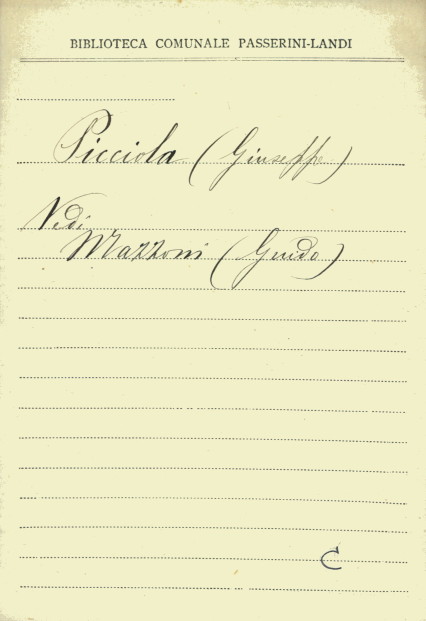 BIBLIOTECA COMUNALE PASSERINI-LANDI
Picciola (Giuseppe)
Vedi
Mazzoni (Guido)
C